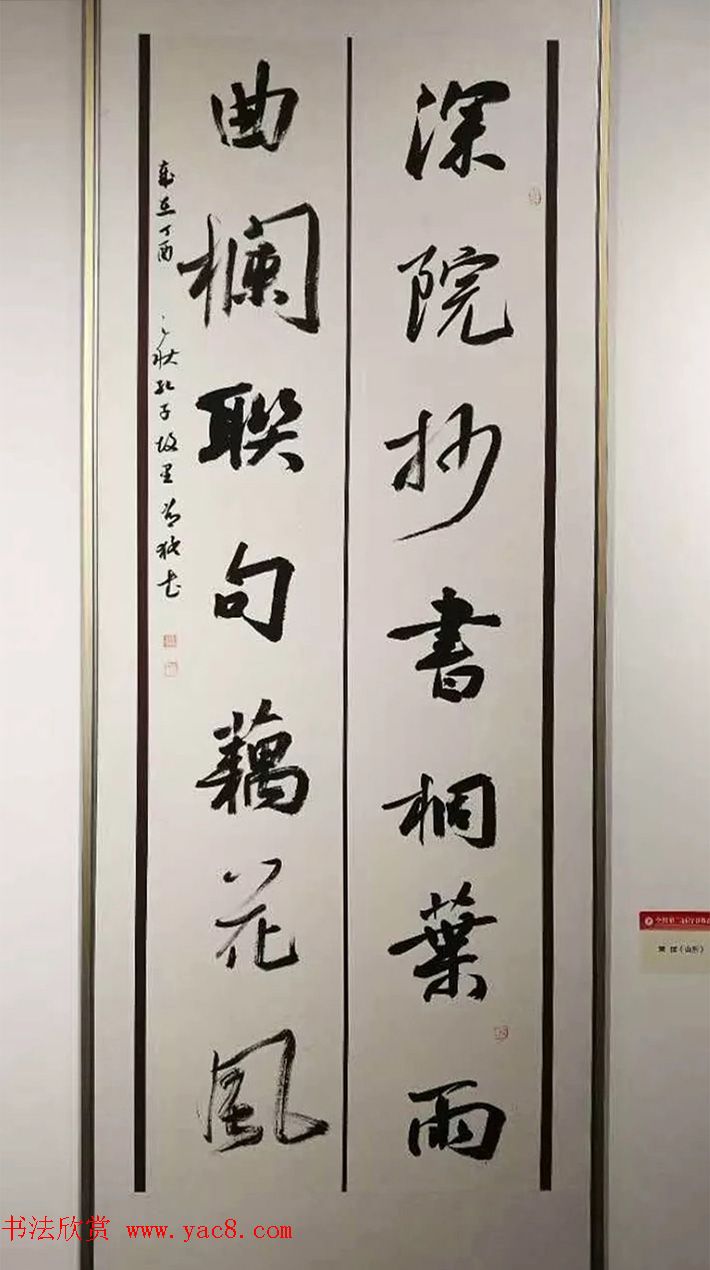 深院抄書桐葉雨
曲欄聯句藕花風
歲在丁酉之秋孔子故里
书法欣赏 www.yac8.com